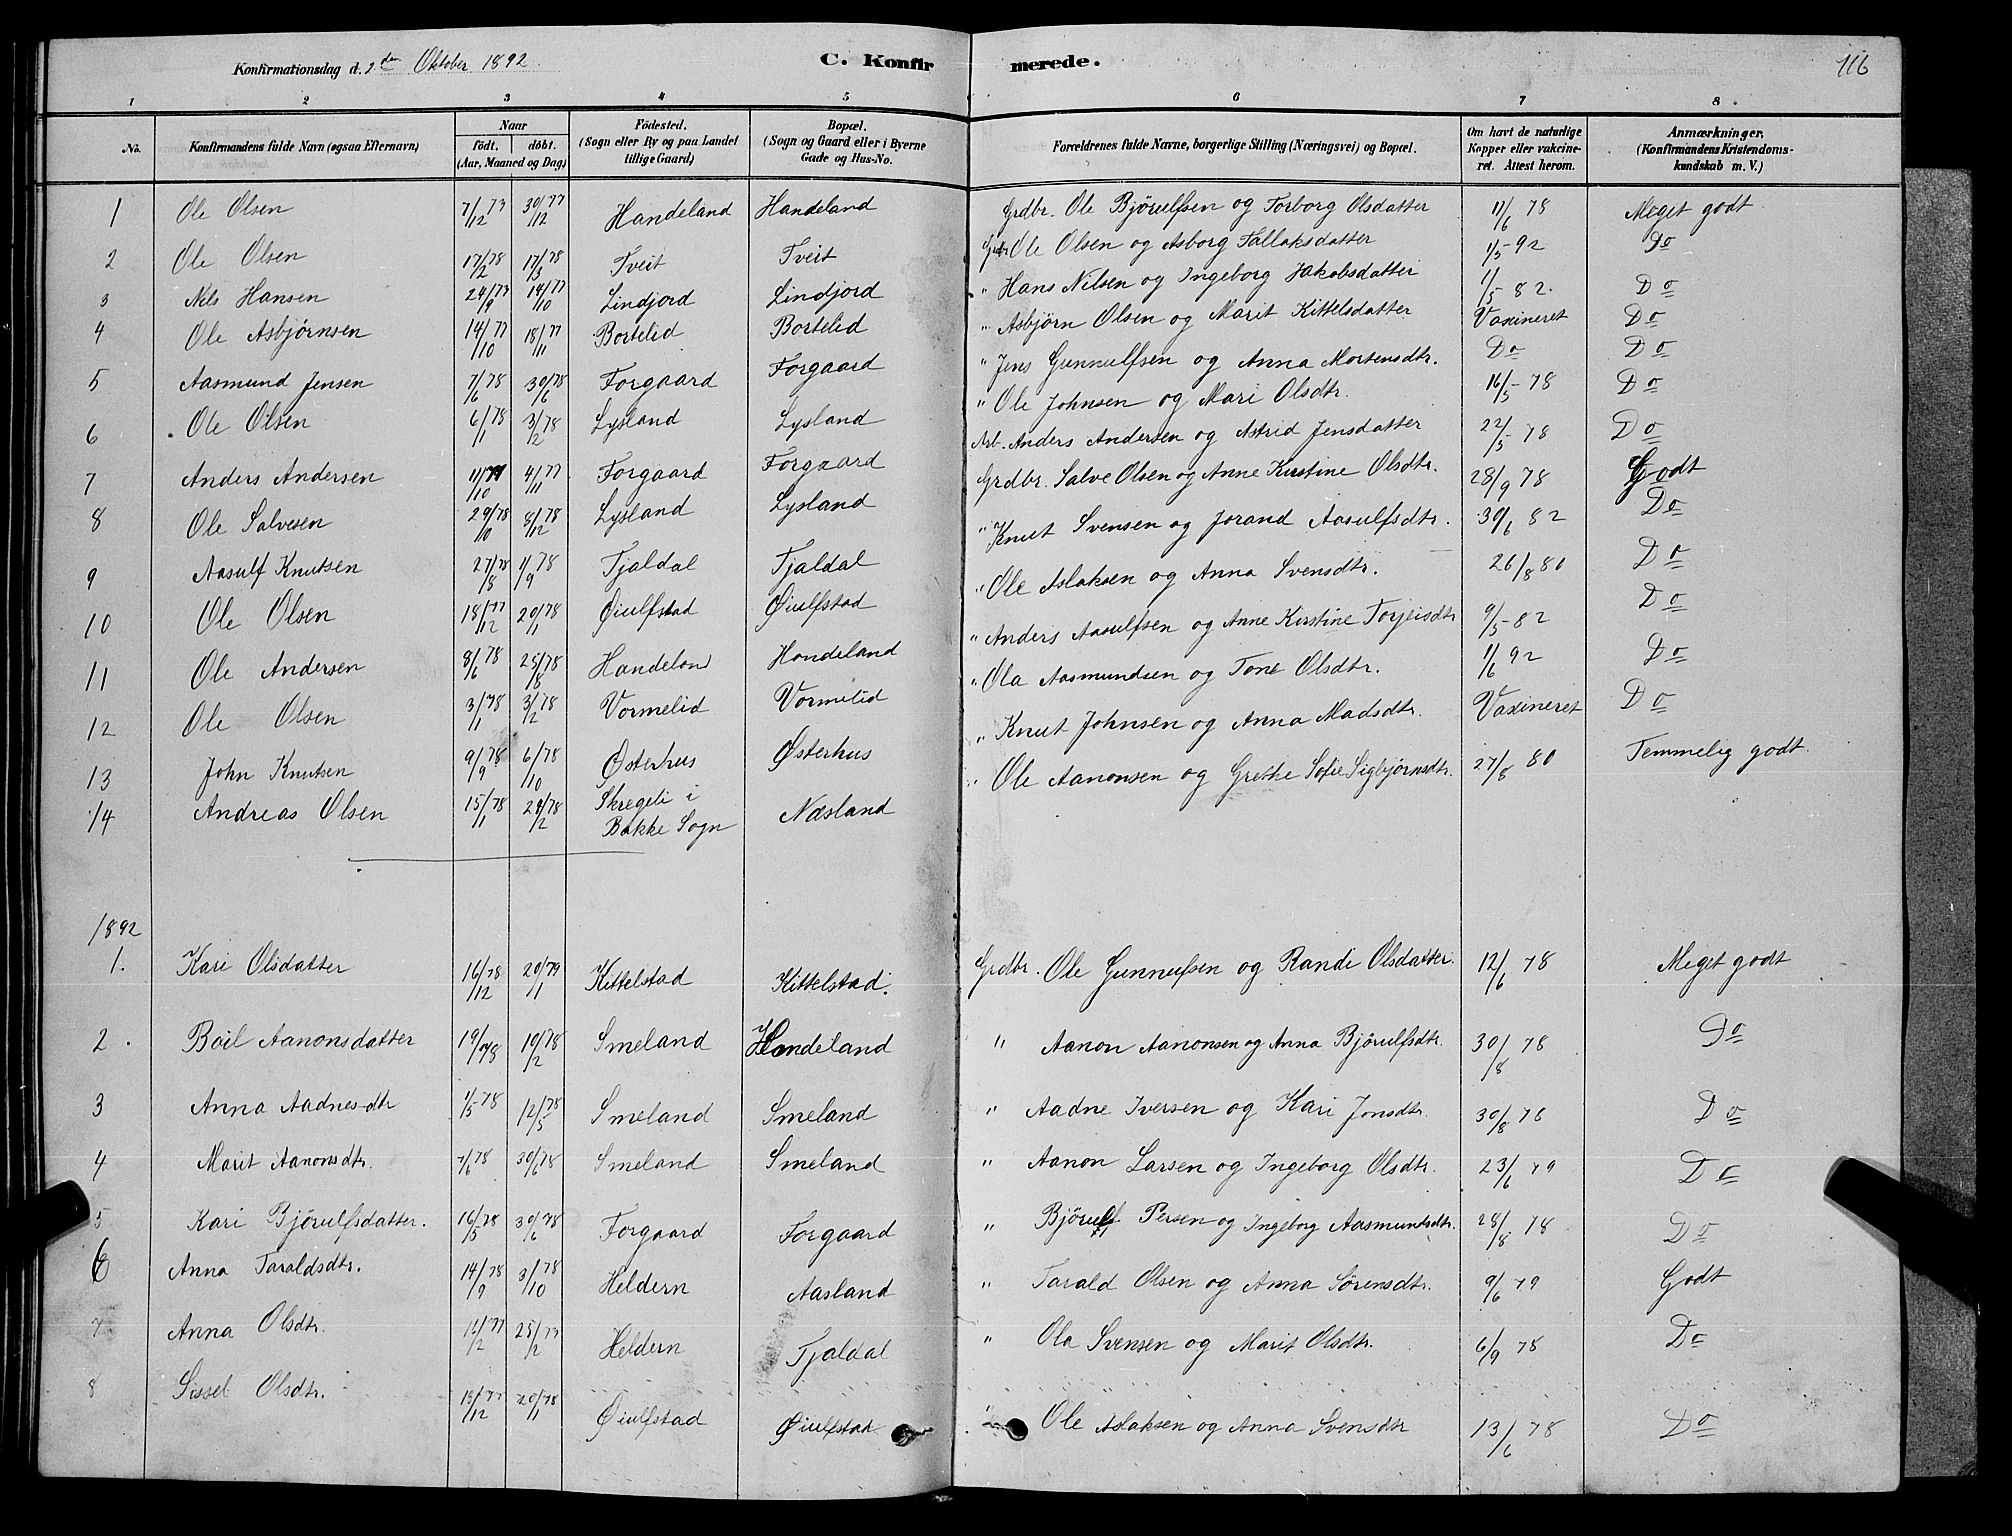 Konfirmationsdag d. 2den Oktober 1892. C. Konfirmerede. 116
1 2 3 4 5 6 7 8
No. | Konfirmandens fulde Navn (ogsaa Efternavn) | Naar födt. döbt. (Aar, Maaned og Dag) | Födested. (Sogn eller By og paa Landet tillige Gaard) | Bopæl. (Sogn og Gaard eller i Byerne Gade og Hus-No. | Forældrenes fulde Navne, borgerlige Stilling (Næringsvei) og Bopæl. | Om havt de naturlige Kopper eller vakcineret. Attest herom. | Anmærkninger. (Konfirmandens Kristendomskundskab m. V.)
1 Ole Olsen 7/12 77 30/12 77 Handeland Handeland Grdbr. Ole Bjørulfsen og Torborg Olsdatter 11/6 78 Meget godt
2 Ole Olsen 17/2 78 17/3 78 Tveit Tveit Grdbr Ole Olsen og Asborg Tallaksdatter 1/5 92 Do
3 Nils Hansen 24/9 77 14/10 77 Lindjord Lindjord " Hans Nilsen og Ingeborg Jakobsdatter 1/5 82. Do
4 Ole Asbjørnsen 14/10 77 18/11 77 Bortelid Bortelid " Asbjørn Olsen og Marit Kittelsdatter Vaxineret Do
5 Aasmund Jensen 7/6 78 30/6 78 Forgaard Forgaard " Jens Gunnulfsen og Anna Mortensdtr. Do Do
6 Ole Olsen 6/1 78 3/2 78 Lysland Lysland " Ole Johnsen og Mari Olsdtr. 16/5 78 Do
7 Anders Andersen 11/10 77 4/11 77 Forgaard Forgaard Arb. Anders Andersen og Astrid Jensdatter 22/5 78 Do
8 Ole Salvesen 29/10 78 8/12 78 Lysland Lysland Grdbr. Salve Olsen og Anne Kirstine Olsdtr. 28/9 78 Godt
9 Aasulf Knutsen 27/8 78 1/9 78 Tjaldal Tjaldal " Knut Svensen og Jorand Aasulfsdtr. 30/6 82 Do
10 Ole Olsen 18/12 77 20/1 78 Øiulfstad Øiulfstad " Ole Aslaksen og Anna Svensdtr. 26/8 80 Do
11 Ole Andersen 8/6 78 25/8 78 Handelan Handeland " Anders Aasulfsen og Anne Kirstine Torjeisdtr 9/5 82 Do
12 Ole Olsen 3/1 78 3/2 78 Vormelid Vormelid " Ola Aasmundsen og Tone Olsdtr. 1/6 92 Do
13 John Knutsen 9/9 78 6/10 78 Østerhus Østerhus " Knut Johnsen og Anna Madsdtr. Vaxineret Do
14 Andreas Olsen 15/1 78 24/2 78 Skregeli i Bakke Sogn Næsland " Ole Aanonsen og Grethe Sofie Sigbjørnsdtr. 27/8 80 Temmelig godt.
1892
1. Kari Olsdatter 16/12 78 20/1 79 Kittelstad Kittelstad. Grdbr. Ole Gunnufsen og Randi Olsdatter. 12/6 78 Meget godt
2. Boil Aanonsdatter 19/1 78 10/2 78 Smeland Handeland " Aanon Aanonsen og Anna Bjørulfsdtr. 30/8 78 Do
3 Anna Aadnesdtr 1/5 78 12/5 78 Smeland Smeland " Aadne Iversen og Kari Jonsdtr. 30/8 78 Do
4 Marit Aanonsdtr. 7/6 78 30/6 78 Smeland Smeland " Aanon Larsen og Ingeborg Olsdtr. 23/6 79 Do
5 Kari Bjørulfsdatter. 16/5 78 30/6 78 Forgaard Forgaard " Bjørulf Persen og Ingeborg Aasmundsdtr. 28/8 78 Do
6 Anna Taraldsdtr. 14/9 78 3/10 78 Heldern Aasland " Tarald Olsen og Anna Sørensdtr. 9/6 79 Godt
7 Anna Olsdtr. 16/2 77 25/2 77 Heldern Tjaldal " Ola Svensen og Marit Olsdtr. 6/9 78 Do
8 Sissel Olsdtr. 18/12 77 20/1 78 Øiulfstad Øiulfstad " Ole Aslaksen og Anna Svensdtr 13/6 78 Do